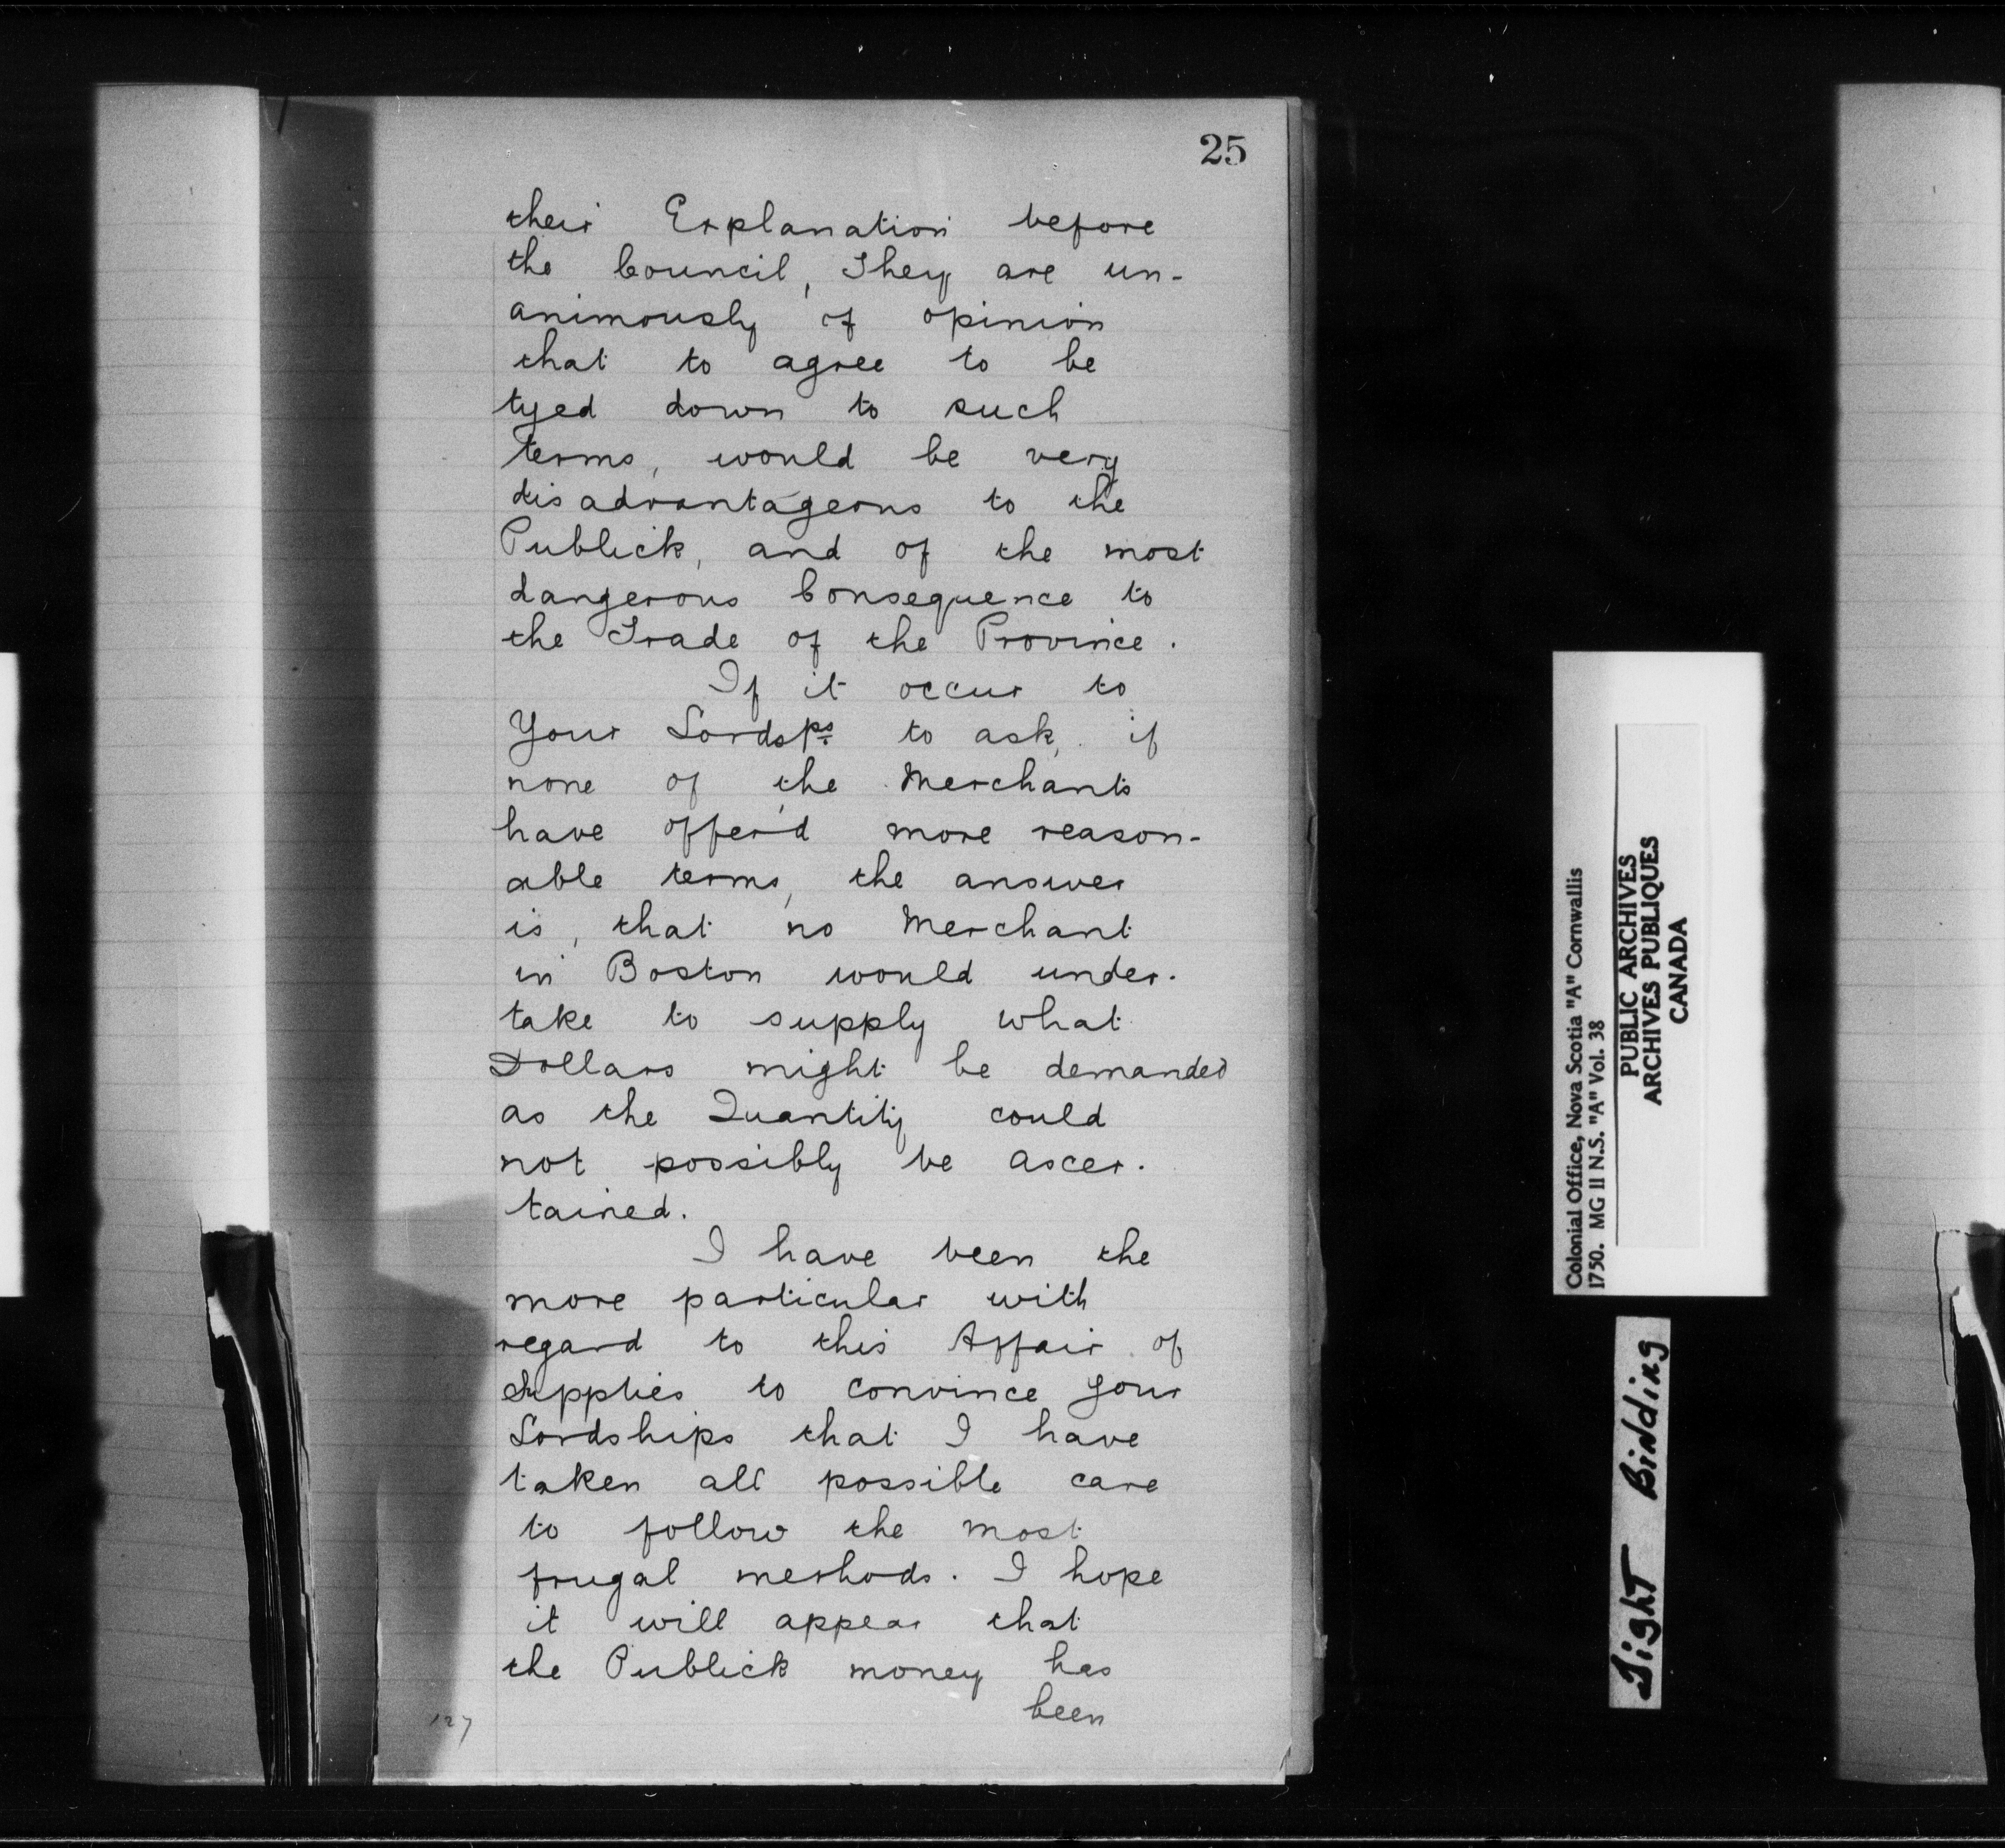 25
their Explanation before
the Council, They are un-
animously of opinion
that to agree to be
tyed down to such
terms, would be very
disadvantageous to the
Publick, and of the most
dangerous Consequence to
the Trade of the Province.
If it occur to
Your Lordsps. to ask, if
none of the Merchants
have offer'd more reason-
able terms, the answer
is, that no Merchant
in Boston would under-
take to supply what
Dollars might be demanded
as the Quantity could
not possibly be ascer-
tained.
I have been the
more particular with
regard to this Affair of
Supplies to convince your
Lordships that I have
taken all possible care
to follow the most
frugal methods. I hope
it will appear that
the Publick money has
been
127
Colonial Office, Nova Scotia "A" Cornwallis
1750. MG 11 N.S. "A" Vol. 38
PUBLIC ARCHIVES
ARCHIVES PUBLIQUES
CANADA
Tight Binding